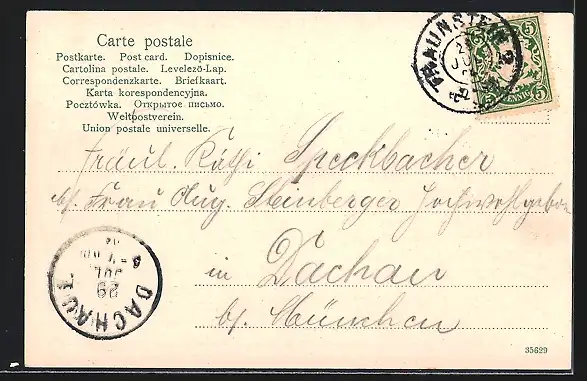 Carte postale
Postkarte. Post card. Dopisnice.
Cartolina postale. Levelező-Lap.
Correspondenzkarte. Briefkaart.
Karta korespondencyjna.
Pocztówka. Открытое письмо.
Weltpostverein.
Union postale universelle.
TRAUNSTEIN 2
5 5
PFENNIG
5 5
Fräul. Käthi Speckbacher
b/ Frau Aug. Steinberger Hochwohlgebor
in Dachau
b/ München
DACHAU
29
JUL
35629